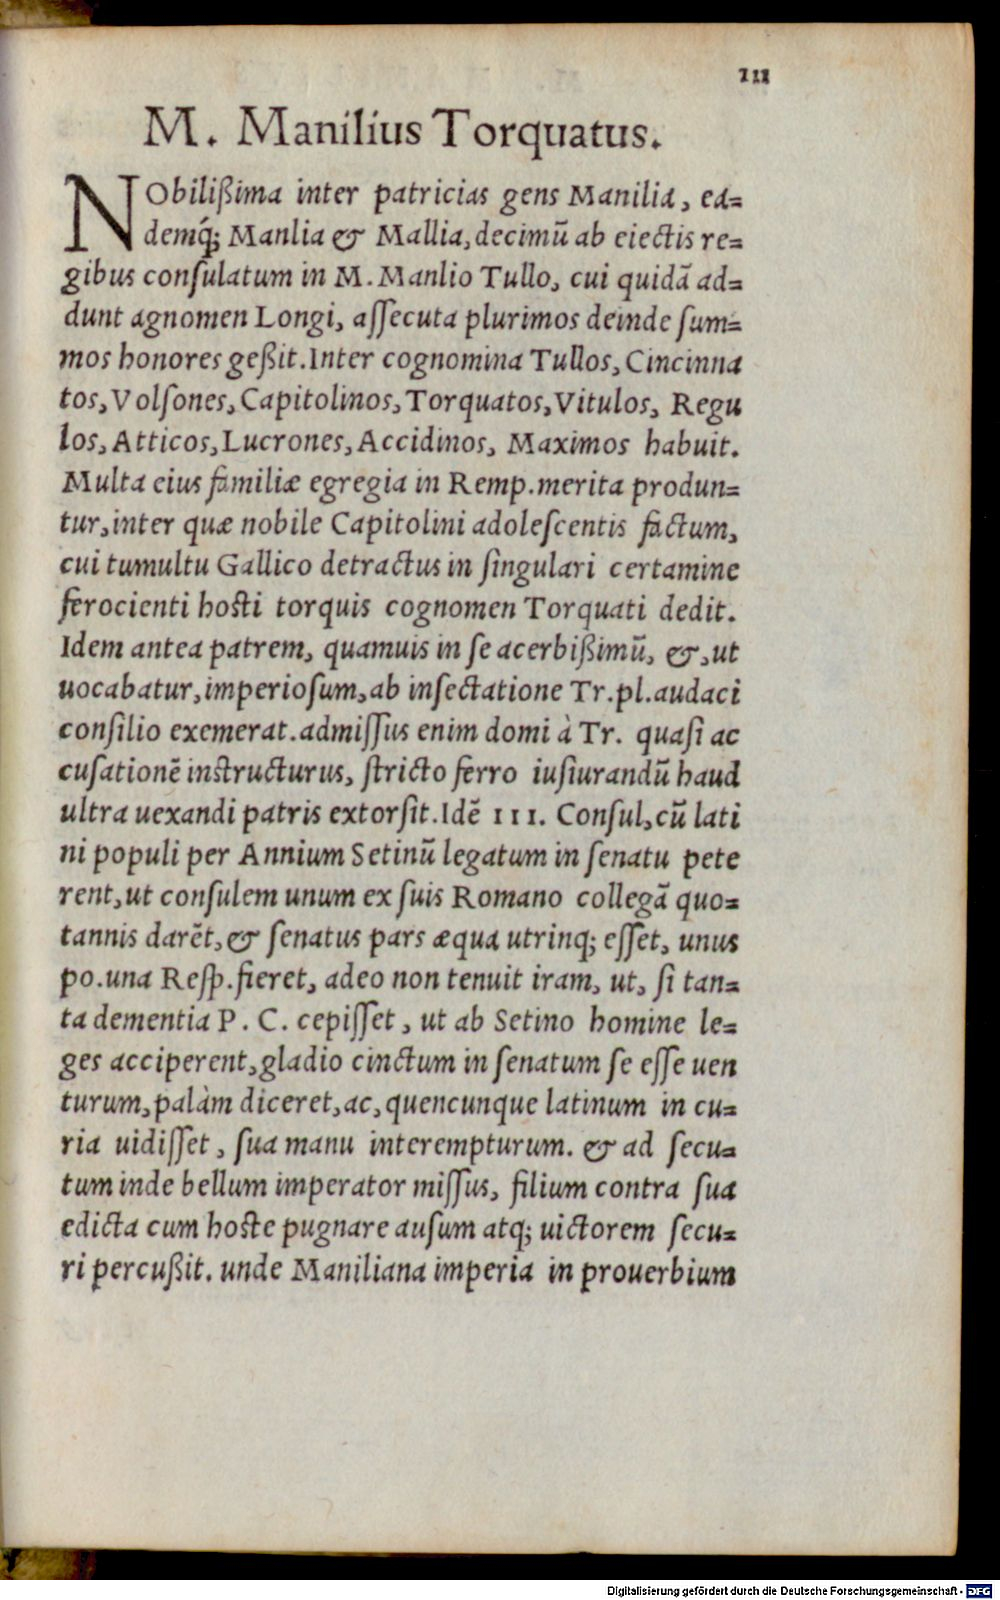 111
M. Manilius Torquatus.
NObilißima inter patricias gens Manilia, ea=
demq́; Manlia & Mallia, decimū ab eiectis re=
gibus conſulatum in M. Manlio Tullo, cui quidā ad=
dunt agnomen Longi, aſſecuta plurimos deinde ſum=
mos honores geßit. Inter cognomina Tullos, Cincinna
tos, Volſones, Capitolinos, Torquatos, Vitulos, Regu
los, Atticos, Lucrones, Accidinos, Maximos habuit.
Multa eius familiæ egregia in Remp. merita produn=
tur, inter quæ nobile Capitolini adoleſcentis factum,
cui tumultu Gallico detractus in ſingulari certamine
ferocienti hoſti torquis cognomen Torquati dedit.
Idem antea patrem, quamuis in ſe acerbißimū, &, ut
uocabatur, imperioſum, ab inſectatione Tr. pl. audaci
conſilio exemerat. admiſſus enim domi à Tr. quaſi ac
cuſationē inſtructurus, ſtricto ferro iuſiurandū haud
ultra uexandi patris extorſit. Idē III. Conſul, cū lati
ni populi per Annium Setinū legatum in ſenatu pete
rent, ut conſulem unum ex ſuis Romano collegā quo=
tannis darēt, & ſenatus pars æqua utrinq; eſſet, unus
po. una Reſp. fieret, adeo non tenuit iram, ut, ſi tan=
ta dementia P. C. cepiſſet, ut ab Setino homine le=
ges acciperent, gladio cinctum in ſenatum ſe eſſe uen
turum, palàm diceret, ac, quencunque latinum in cu=
ria uidiſſet, ſua manu interempturum. & ad ſecu=
tum inde bellum imperator miſſus, filium contra ſua
edicta cum hoſte pugnare auſum atq; uictorem ſecu=
ri percußit. unde Maniliana imperia in prouerbium
Digitalisierung gefördert durch die Deutsche Forschungsgemeinschaft - DFG